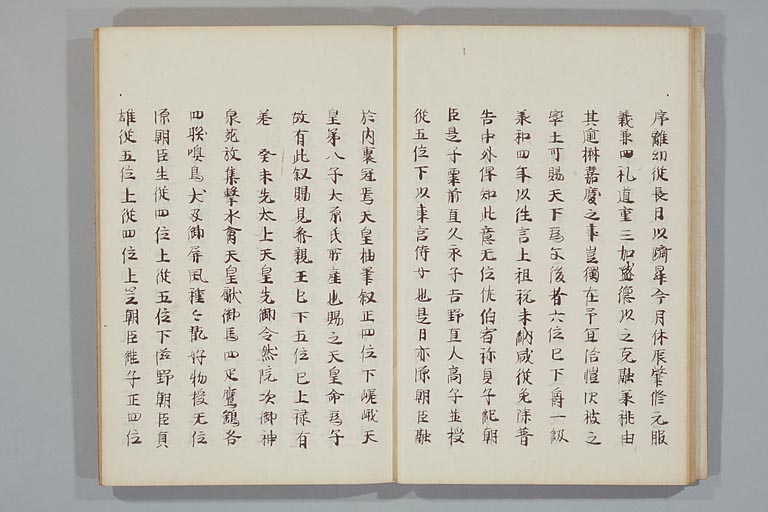 序雖幼従長月以隮犀今月休辰肇修元服
義兼四礼道重三加盛徳以之克融兼祧由
其逾搆嘉慶之事豈獨在予宜洽愷沢被之
率土可賜天下為父後者六位已下爵一級
承和四年以往言上租税未納咸従免除普
告中外俾知此意无位佐伯宿祢貞子紀朝
臣是子粟前直久永子吉野真人高子並授
従五位下以束宮侍女也是日亦源朝臣融
於内裏冠焉天皇抽筆叙正四位下嵯峨天
皇第八子大原氏所産也賜之天皇命為子
故有此叙賜見参親王已下五位已上禄有
差 癸未先太上天皇先御冷然院次御神
泉苑放隼撃水禽天皇献御馬四疋鷹鷂各
四聯嗅鳥犬及御屏風種々翫好物授无位
源朝臣生従四位上従五位下滋野朝臣貞
雄従五位上従四位上笠朝臣継子正四位